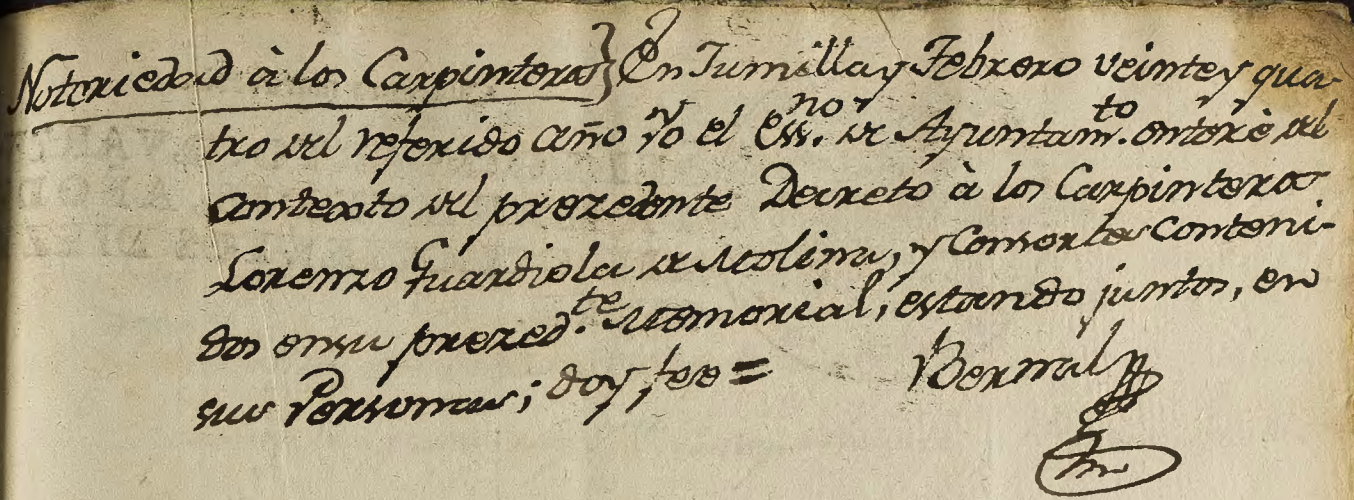 Notoriedad à los Carpinteros} En Jumilla y Febrero veinte y qua
tro del referido año yo el Ess.no de Ayuntam.to enterè del
contexto del prezedente Decreto à los Carpinteros
Lorenzo Guardiola de Molina, y Consortes Conteni-
dos en su prezed.te Memorial, estando juntos, en
sus Personas; doy fee =    Bernal